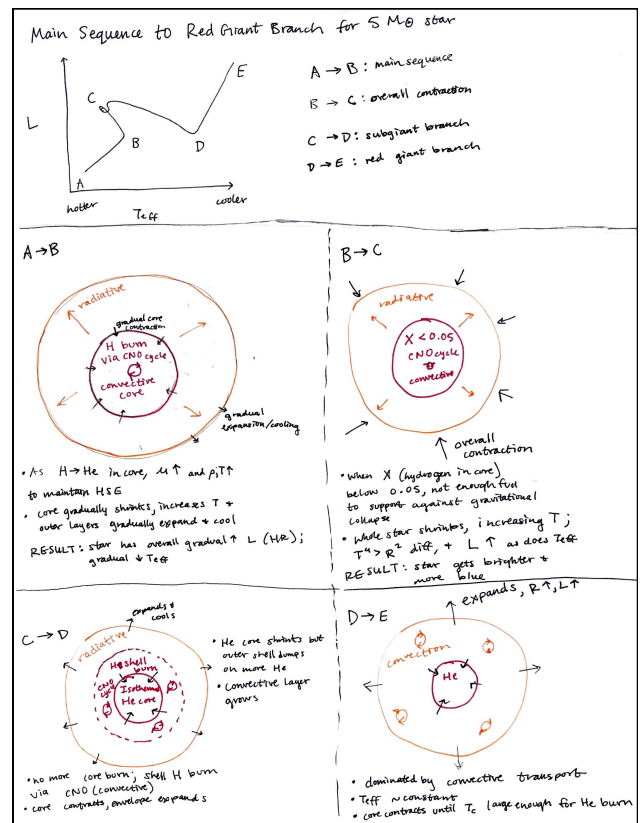 Main Sequence to Red Giant Branch for 5 M⊙ star
L
A
B
C
D
E
hotter
Teff
cooler
A → B: main sequence
B → C: overall contraction
C → D: subgiant branch
D → E: red giant branch
A→B
radiative
gradual core
contraction
H burn
via CNO cycle
convective
core
gradual
expansion/cooling
• As H→He in core, μ↑ and ρ,T↑
to maintain HSE
• core gradually shrinks, increases T +
outer layers gradually expand + cool
RESULT: star has overall gradual ↑ L (HR);
gradual ↓ Teff
B→C
radiative
X < 0.05
CNO cycle
convective
overall
contraction
• when X (hydrogen in core)
below 0.05, not enough fuel
to support against gravitational
collapse
• Whole star shrinks, increasing T;
T⁴ > R² diff, + L ↑ as does Teff
RESULT: star gets brighter +
more blue
C → D
expands +
cools
radiative
H shell
burn
CNO
cycle
Isothermal
He core
• He core shrinks but
outer shell dumps
on more He
• Convective layer
grows
• no more core burn; shell H burn
via CNO (convective)
• core contracts, envelope expands
D→E
expands, R↑, L↑
convection
He
• dominated by convective transport
• Teff ~ constant
• core contracts until Tc large enough for He burn